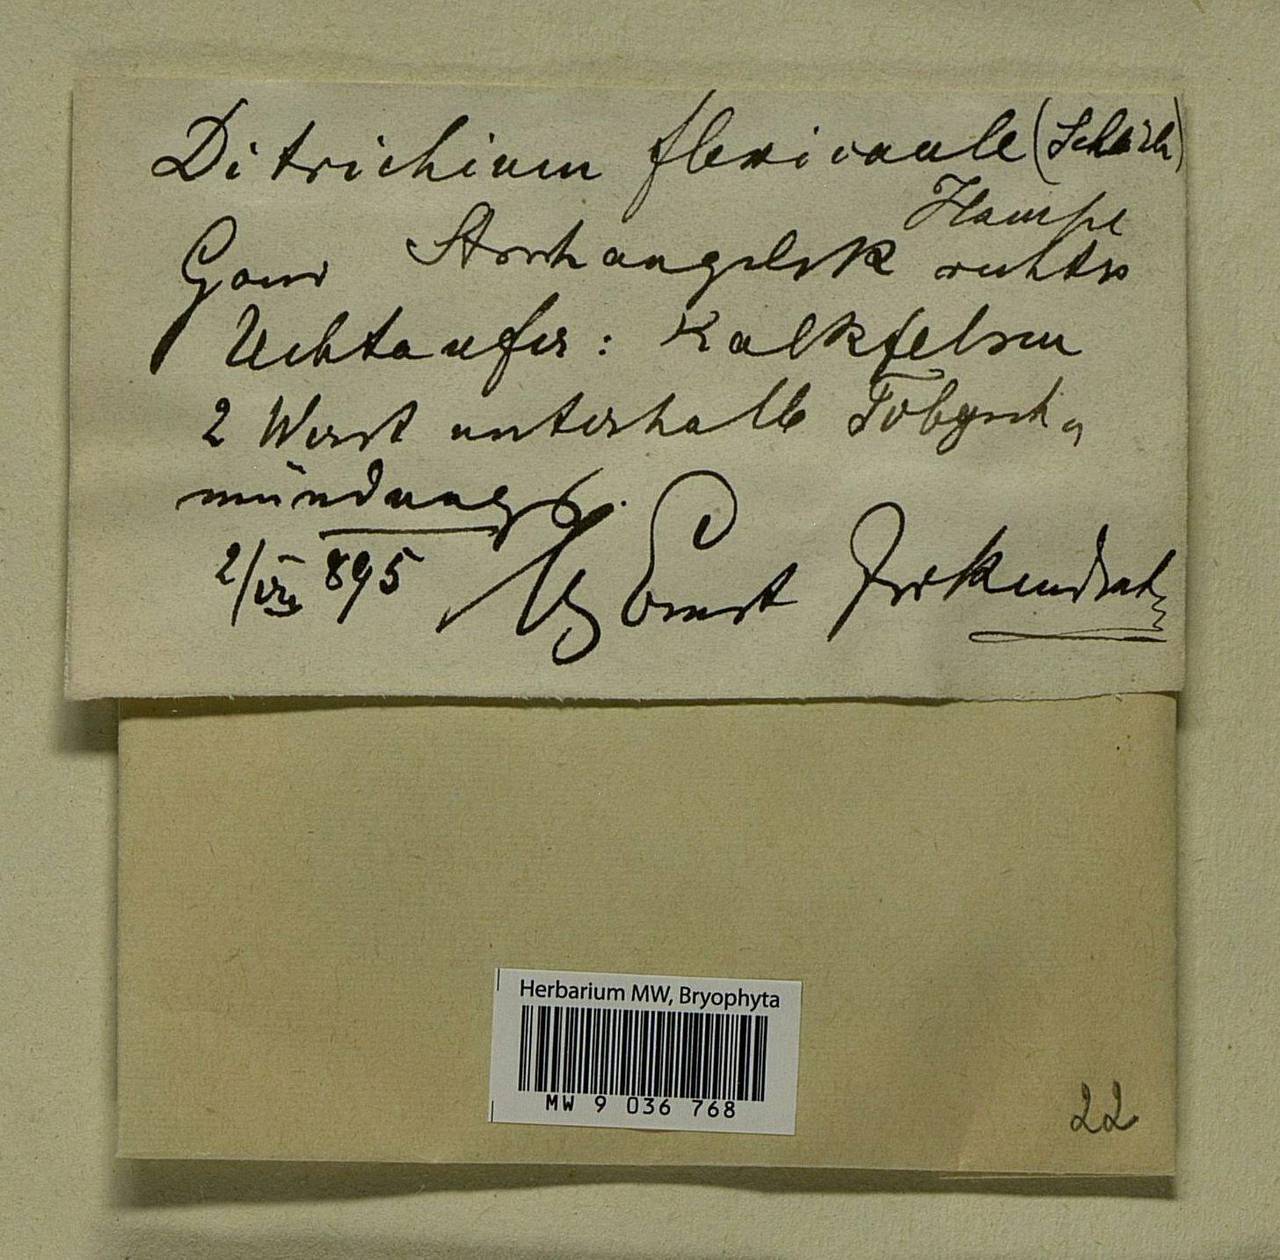 Ditrichium flexicaule (Schleich)
Hampe
Gouv Archangelsk rechtes
Uchtaufer: Kalkfelsen
2 Werst unterhalb Tobysch,
mündung.
2/VII 895 Ernst
22
Herbarium MW, Bryophyta
MW 9 036 768